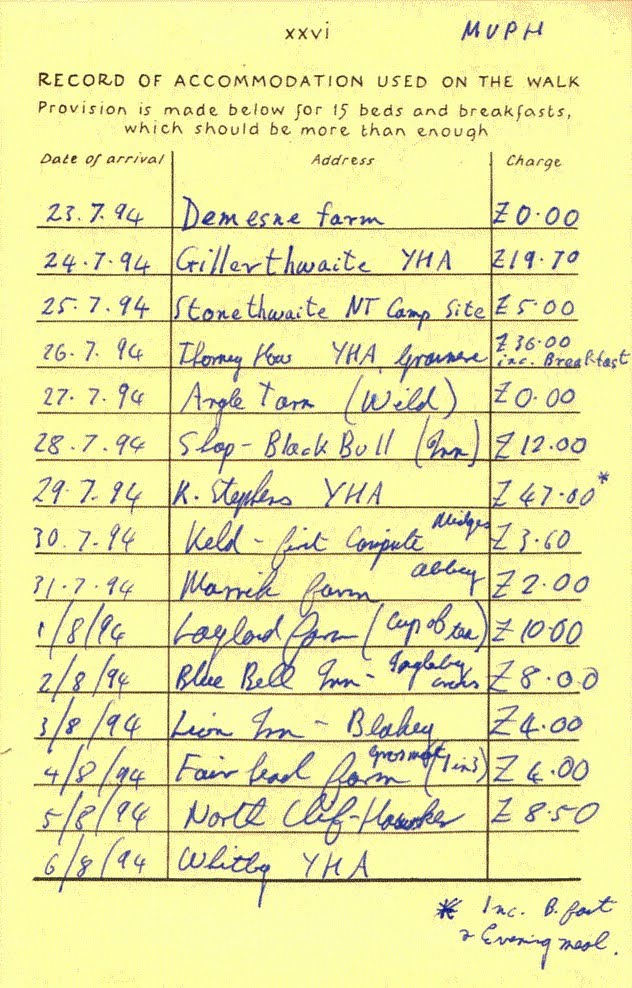 xxvi MVPH
RECORD OF ACCOMMODATION USED ON THE WALK
Provision is made below for 15 beds and breakfasts,
which should be more than enough
Date of arrival Address Charge
23.7.94 Demesne farm £0.00
24.7.94 Gillerthwaite YHA £19.70
25.7.94 Stonethwaite NT Camp Site £5.00
26.7.94 Thorney How YHA Grasmere £36.00 inc. Breakfast
27.7.94 Angle Tarn (Wild) £0.00
28.7.94 Shap - Black Bull (Inn) £12.00
29.7.94 K. Stephens YHA £47.00*
30.7.94 Keld - first Campsite Midges £3.60
31.7.94 Marrick abbey farm £2.00
1/8/94 farm (Cup of tea) £10.00
2/8/94 Blue Bell Inn - Ingleby £8.00
3/8/94 Lion Inn - Blakey £4.00
4/8/94 Fair head farm Grosmont (1 in 3) £4.00
5/8/94 North Clif - Hawsker £8.50
6/8/94 Whitby YHA
* Inc. B.fast
& Evening meal.